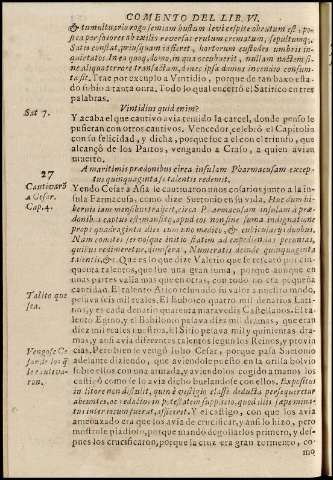 COMENTO DEL LIB. VI.
& tumultuario rogo semiam bustum levi cespite obrutum est, po-
stea per sorores ab exilio reversas erutum crematum, sepultumq;.
Satis constat, priusquam id fieret, hortorum custodes umbris in-
quietatos. In ea quoq; domo, in qua occubuerit, nullam noctem si-
ne aliquo terrore transactam, donec ipsa domus incendio consum-
ta sit. Trae por exemplo a Vintidio, porque de tan baxo esta-
do subio a tanta onra. Todo lo qual encerrò el Satirico en tres
palabras.
Sat 7.
Vintidius quid enim?
Y acaba el que cautivo avia tenido la carcel, donde penso le
pusieran con otros cautivos. Vencedor celebrò el Capitolio
con su felicidad, y dicha, porque fue a el con el triunfo, que
alcançò de los Partos, vengando a Craso, a quien avian
muerto.
27
A maritimis prædonibus circa insulam Pharmacusam excep-
tus quinquaginta se talentis redemit.
Cautivarõ
a Cesar.
Cap. 4.
Yendo Cesar a Asia le cautivaron unos cosarios junto a la in-
sula Farmacusa, como dize Suetonio en su vida. Hac dum hi-
bernis iam mensibus traiicit, circa Pharmacusam insulam a præ-
donibus captus est mansitq; apud eos non sine summa indignatione
prope quadraginta dies cum uno medico, & cubiculariis duobus.
Nam comites servosque initio statim ad expediendas pecunias,
quibus redimeretur, dimiserat. Numeratis deinde quinquaginta
talentis, &c. Que es lo que dize Valerio que se rescatò por cin-
quenta talentos, que fue una gran suma, porque aunque en
unas partes valia mas que en otras, con todo no era pequeña
cantidad. El talento Atico reducido su valor a nuestro modo,
Talẽto que
sea.
pesava seis mil reales. El Euboico quatro mil denarios Lati-
nos, y es cada denario quarenta maravedis Castellanos. El ta-
lento Eginco, y el Babilonio pesava diez mil dramas, que eran
diez mil reales nuestros. El Sirio pesava mil y quinientas dra-
mas, y aun avia diferentes talentos segun los Reinos, y provin
cias. Pero bien le vengò Iulio Cesar, porque passa Suetonio
Vengose Ce
sar de los q̃
le cautiva-
ron.
adelante diziendo, que aviendole puesto en la orilla bolvio
sobre ellos con una armada, y aviendolos cogido a manos los
castigò como se lo avia dicho burlandose con ellos. Expositus
in litore non distulit, quin è vestigio classe deducta persequeretur
abeuntes, ac redactos in potestatem supplicio, quod illis sæpe mina-
tus inter iocum fuerat, afficeret. Y el castigo, con que los avia
amenazado era que los avia de crucificar, y ansi lo hizo, pero
mostrose piadoso, porque mandò degollarlos primero, y des-
pues los crucificaron, porque la cruz era gran tormento, co-
mo